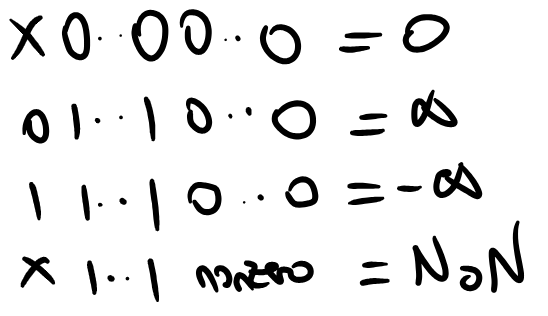 X 0..0 0..0 = 0
0 1..1 0..0 = ∞
1 1..1 0..0 = -∞
X 1..1 nonzero = NaN